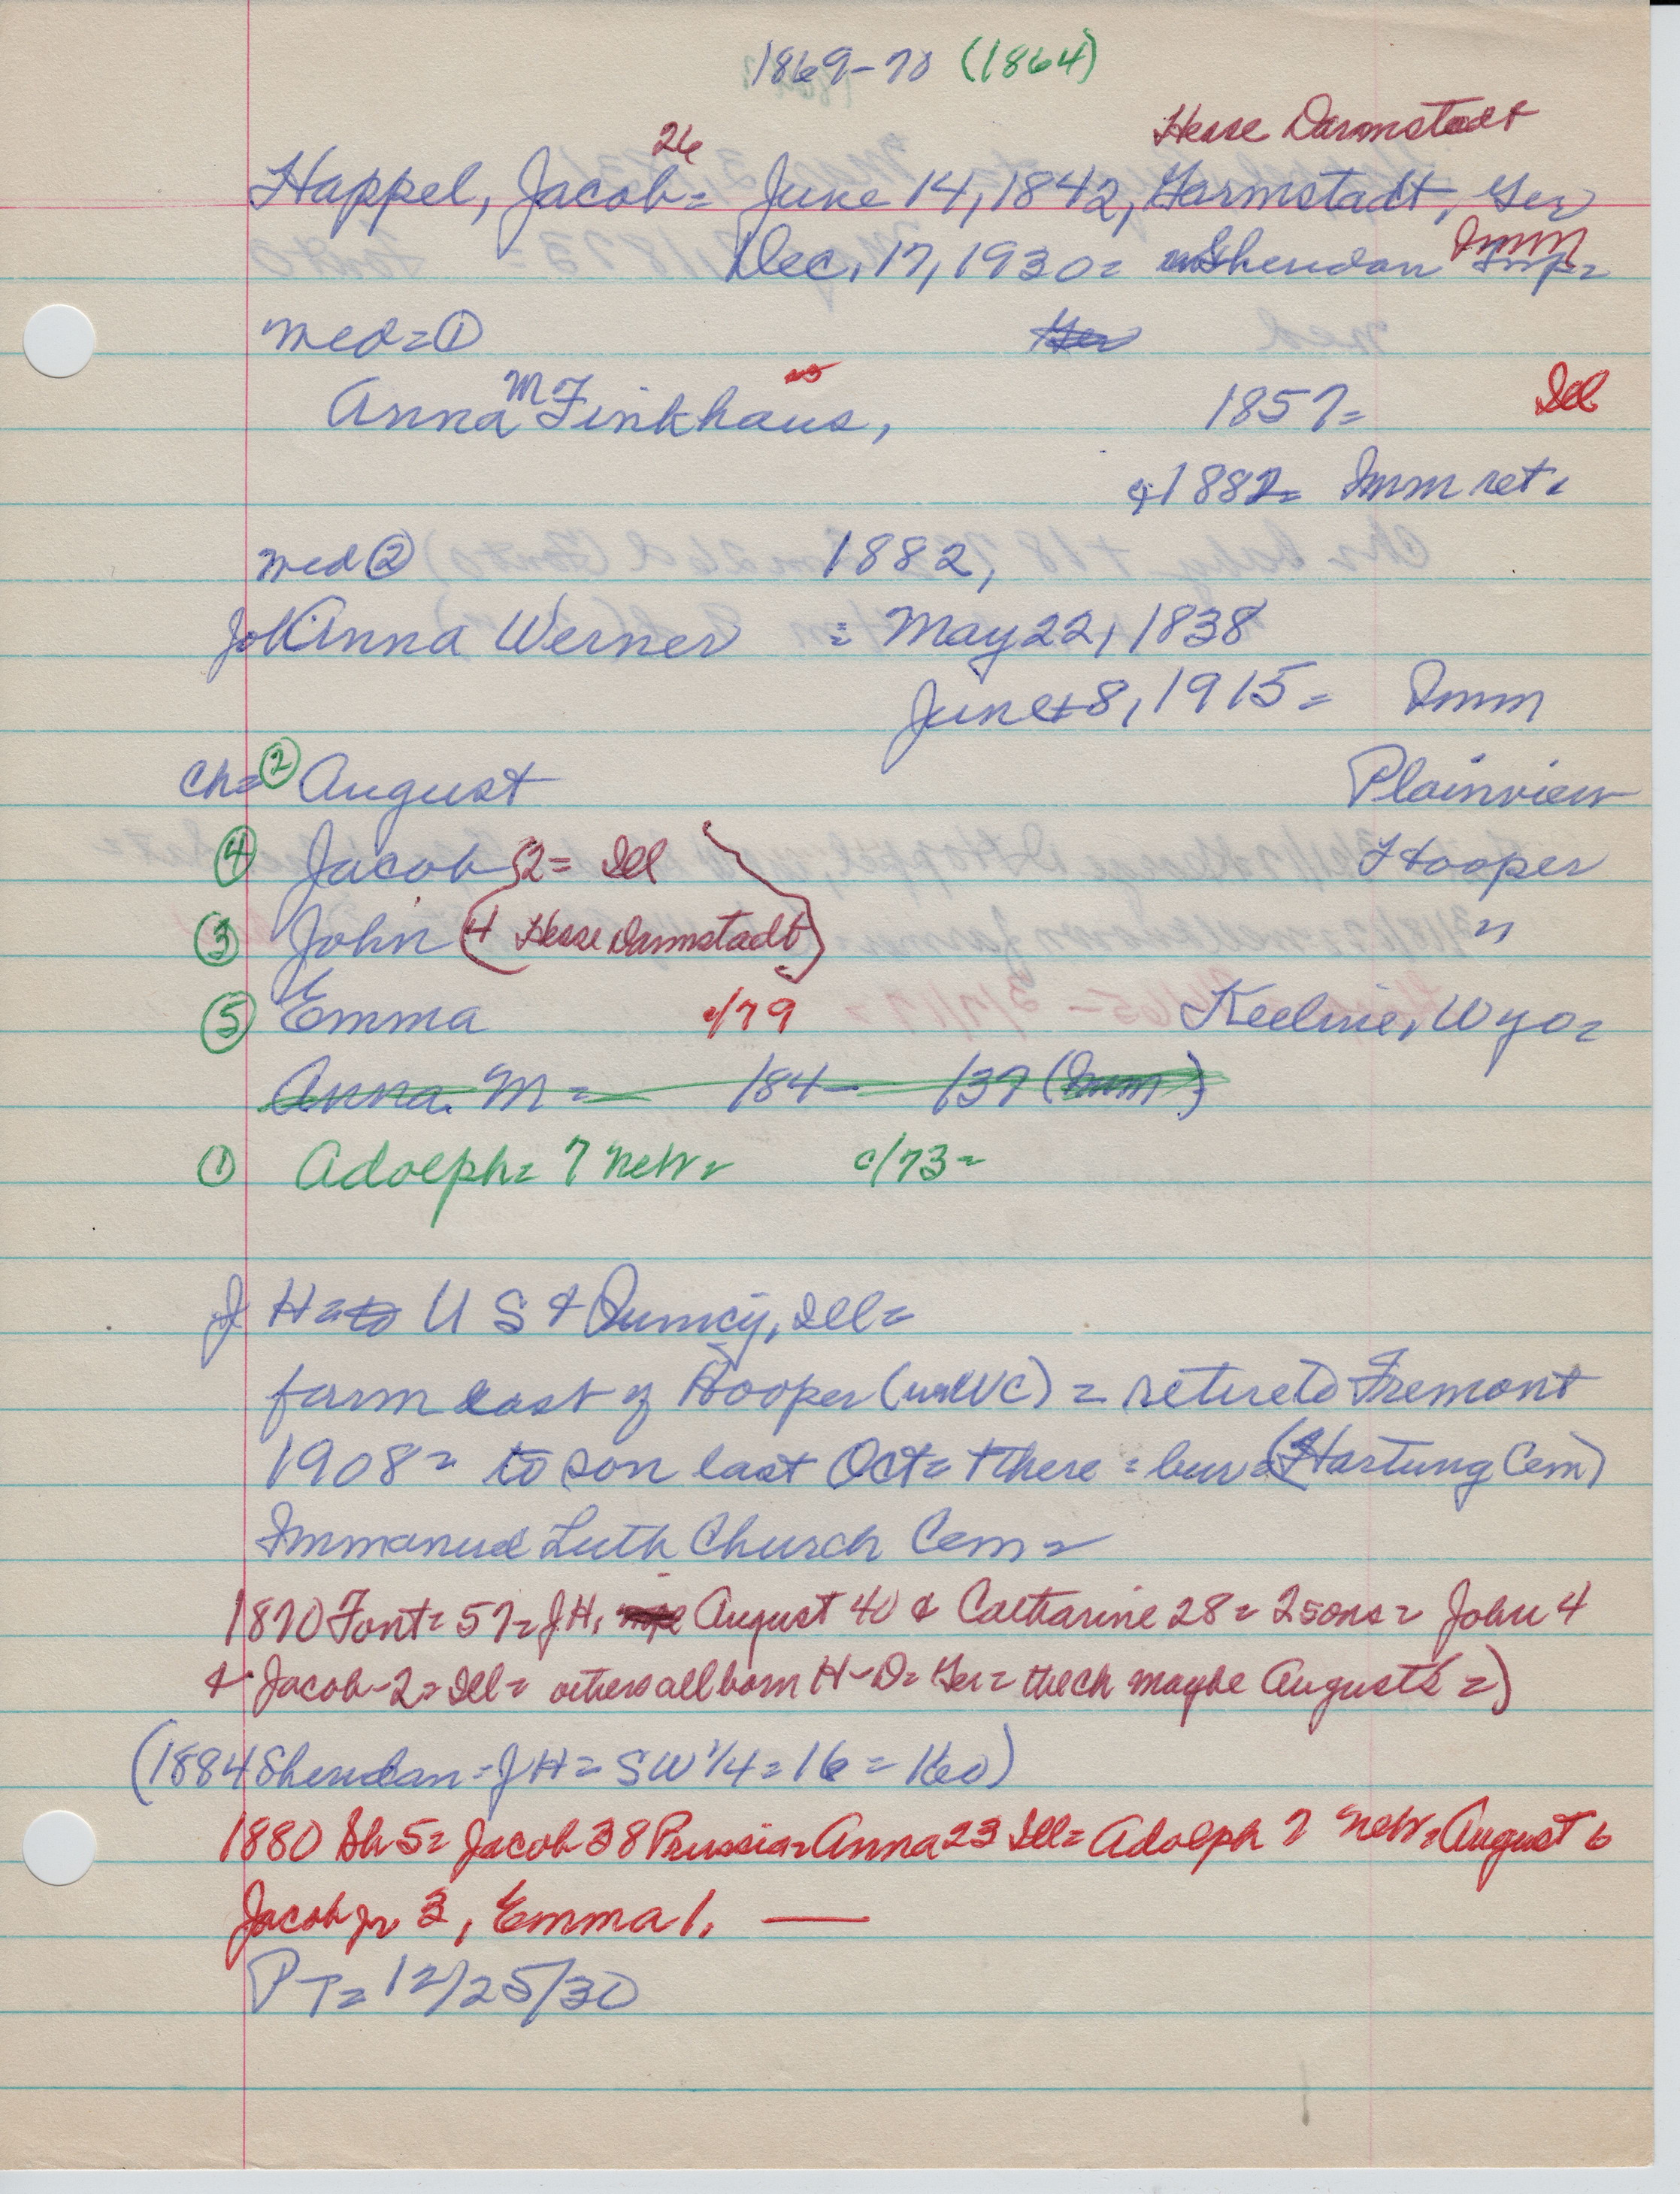 1869-70 (1864)
26 Hesse Darmstadt
Happel, Jacob = June 14, 1842, Darmstadt, Ger
Dec. 17, 1930 = Sheridan Imm
med = ① Ger
Anna M Finkhaus, 1857 = Ill
+1882 = Imm ret.
med ② 1882,
JohAnna Werner = May 22, 1838
June +8, 1915 = Imm
Ch = ② August Plainview
④ Jacob 2 = Ill Hooper
③ John (4 Hesse Darmstadt) "
⑤ Emma c/79 Keeline, Wyo =
Anna. M = 184- 137 (Imm)
① Adolph = 7 Neb = c/73 =
J H = to U S & Quincy, Ill =
farm east of Hooper (WC) = retire to Fremont
1908 = to son last Oct = +there = bur = (Hartung Cem)
Immanuel Luth Church Cem =
1870 Font = 57 = J.H, August 40 & Catharine 28 = 2 sons = John 4
& Jacob - 2 = Ill = others all born H-D = Ger = the ch maybe August's =)
(1884 Sheridan - J H = SW 1/4 = 16 = 160)
1880 Sh 5 = Jacob 38 Prussia = Anna 23 Ill = Adolph 7 Neb = August 6
Jacob jr 3, Emma 1. —
PT = 12/25/30